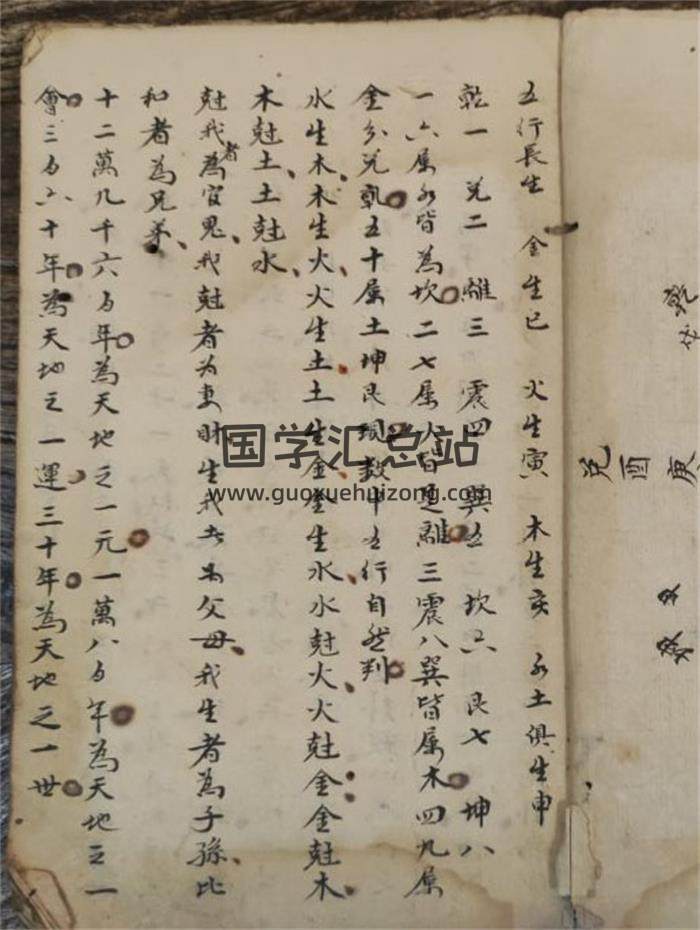 庚
酉
兑
五行長生 金生巳 火生寅 木生亥 水土俱生申
乾一 兑二 離三 震四 巽五 坎六 艮七 坤八
一六属水皆為坎二七属火皆是離三震八巽皆属木四九属
金分兑乾五十属土坤艮現数中五行自然判
水生木木生火火生土土生金金生水水尅火火尅金金尅木
木尅土土尅水
尅我者為官鬼我尅者为妻財生我者為父母我生者為子孫比
和者為兄弟
十二萬九千六百年為天地之一元一萬八百年為天地之一
會三百六十年為天地之一運三十年為天地之一世
国学汇总站
www.guoxuehuizong.com